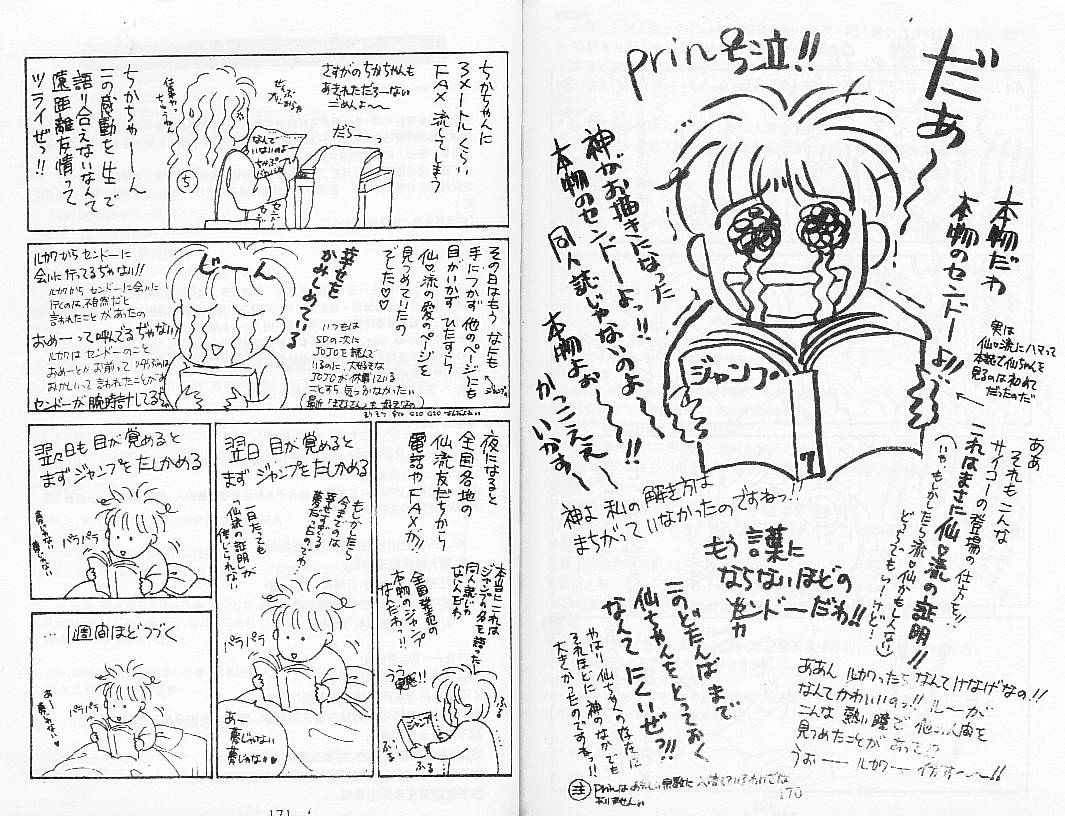 prin号泣!!
だぁ〜〜
本物だわ
本物のセンドーよ!!
実は
仙♡流にハマって
本誌で仙ちゃんを
見るのは初めて
だったのだ
神がお描きになった
本物のセンドーよっ!!
同人誌じゃないのよ〜
本物よぉ〜!!
かっこええ〜
いかす〜
ジャンプ
7
ああ
それもこんな
サイコーの登場の仕方を!!
これはまさに仙♡流の証明!!
(いや、もしかしたら流♡仙かもしんない
どっちでもいーけど…)
神よ 私の解釈は
まちがっていなかったのですねっ!!
もう言葉に
ならないほどの
センドーだわ!!
このどたんばまで
仙ちゃんをとっておく
なんて にくいぜっ!!
やはり仙ちゃんの存在は
それほどに神のなかでも
大きかったのですねっ!!
ああん ルカワったらなんてけなげなの!!
なんてかわいいのっ!! ルーが
こんな熱い瞳で他の人間を
見つめたことがあって!?
うおーールカワーーイカす〜〜!!
注 prinはあやしい宗教に入信しているわけでは
ありません
170
ちかちゃんに
3メートルくらい
FAX流してしまう
さすがのちかちゃんも
あきれただろーない
ごめんよ〜〜
ぜんぶ
だらーっ
なんて
いいの〜
5
ちかちゃーん
この感動を生で
語り合えないなんて
遠距離友情って
ツライぜっ!!
その日はもう なにも
手につかず 他のページにも
目がいかず ひたすら
仙♡流の愛のページを
見つめていたの
でした♡♡
幸せを
かみしめている
じーん
いつもは
SDの次に
JOJOを読んで
いるのに、大好きな
JOJOが休載している
ことすら気づかなかったい
ルカワからセンドーに
会いに行ってるぢゃない!!
ルカワからセンドーに会いに
行くのは不自然だと
言われたことがあったの
おめーって呼んでるぢゃない
ルカワはセンドーのこと
おめーとかお前って呼ぶのは
おかしいって言われたことがあ
センドーが腕時計してるぢゃ
夜になると
全国各地の
仙流友だちから
電話やFAXが!!
本当にこれは
ジャンプの名を語った
同人誌じゃ
ないんだわ
全国発売の
本物のジャンプ
なんだわっ!!
うう
実感!!
ジャンプ
ふる
ふる
翌日 目が覚めると
まず ジャンプをたしかめる
もしかしたら
今までのは
幸せすぎる
夢だったのでわ…
一日たっても
仙流の証明が
信じられない
パラパラ
あー
夢じゃない
夢じゃない♡
翌々日も 目が覚めると
まず ジャンプをたしかめる
パラパラ
夢じゃない
…1週間ほどつづく
パラパラ
あー
夢じゃない♡
171